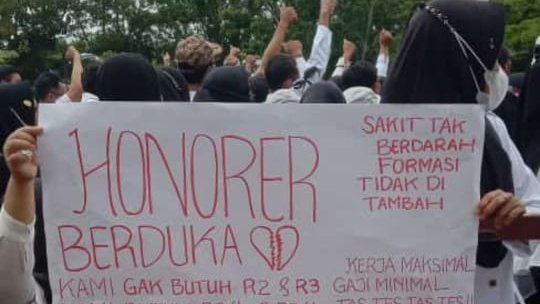 HONORER
BERDUKA
KAMI GAK BUTUH R2 & R3
SAKIT TAK
BERDARAH
FORMASI
TIDAK DI
TAMBAH
KERJA MAKSIMAL
GAJI MINIMAL